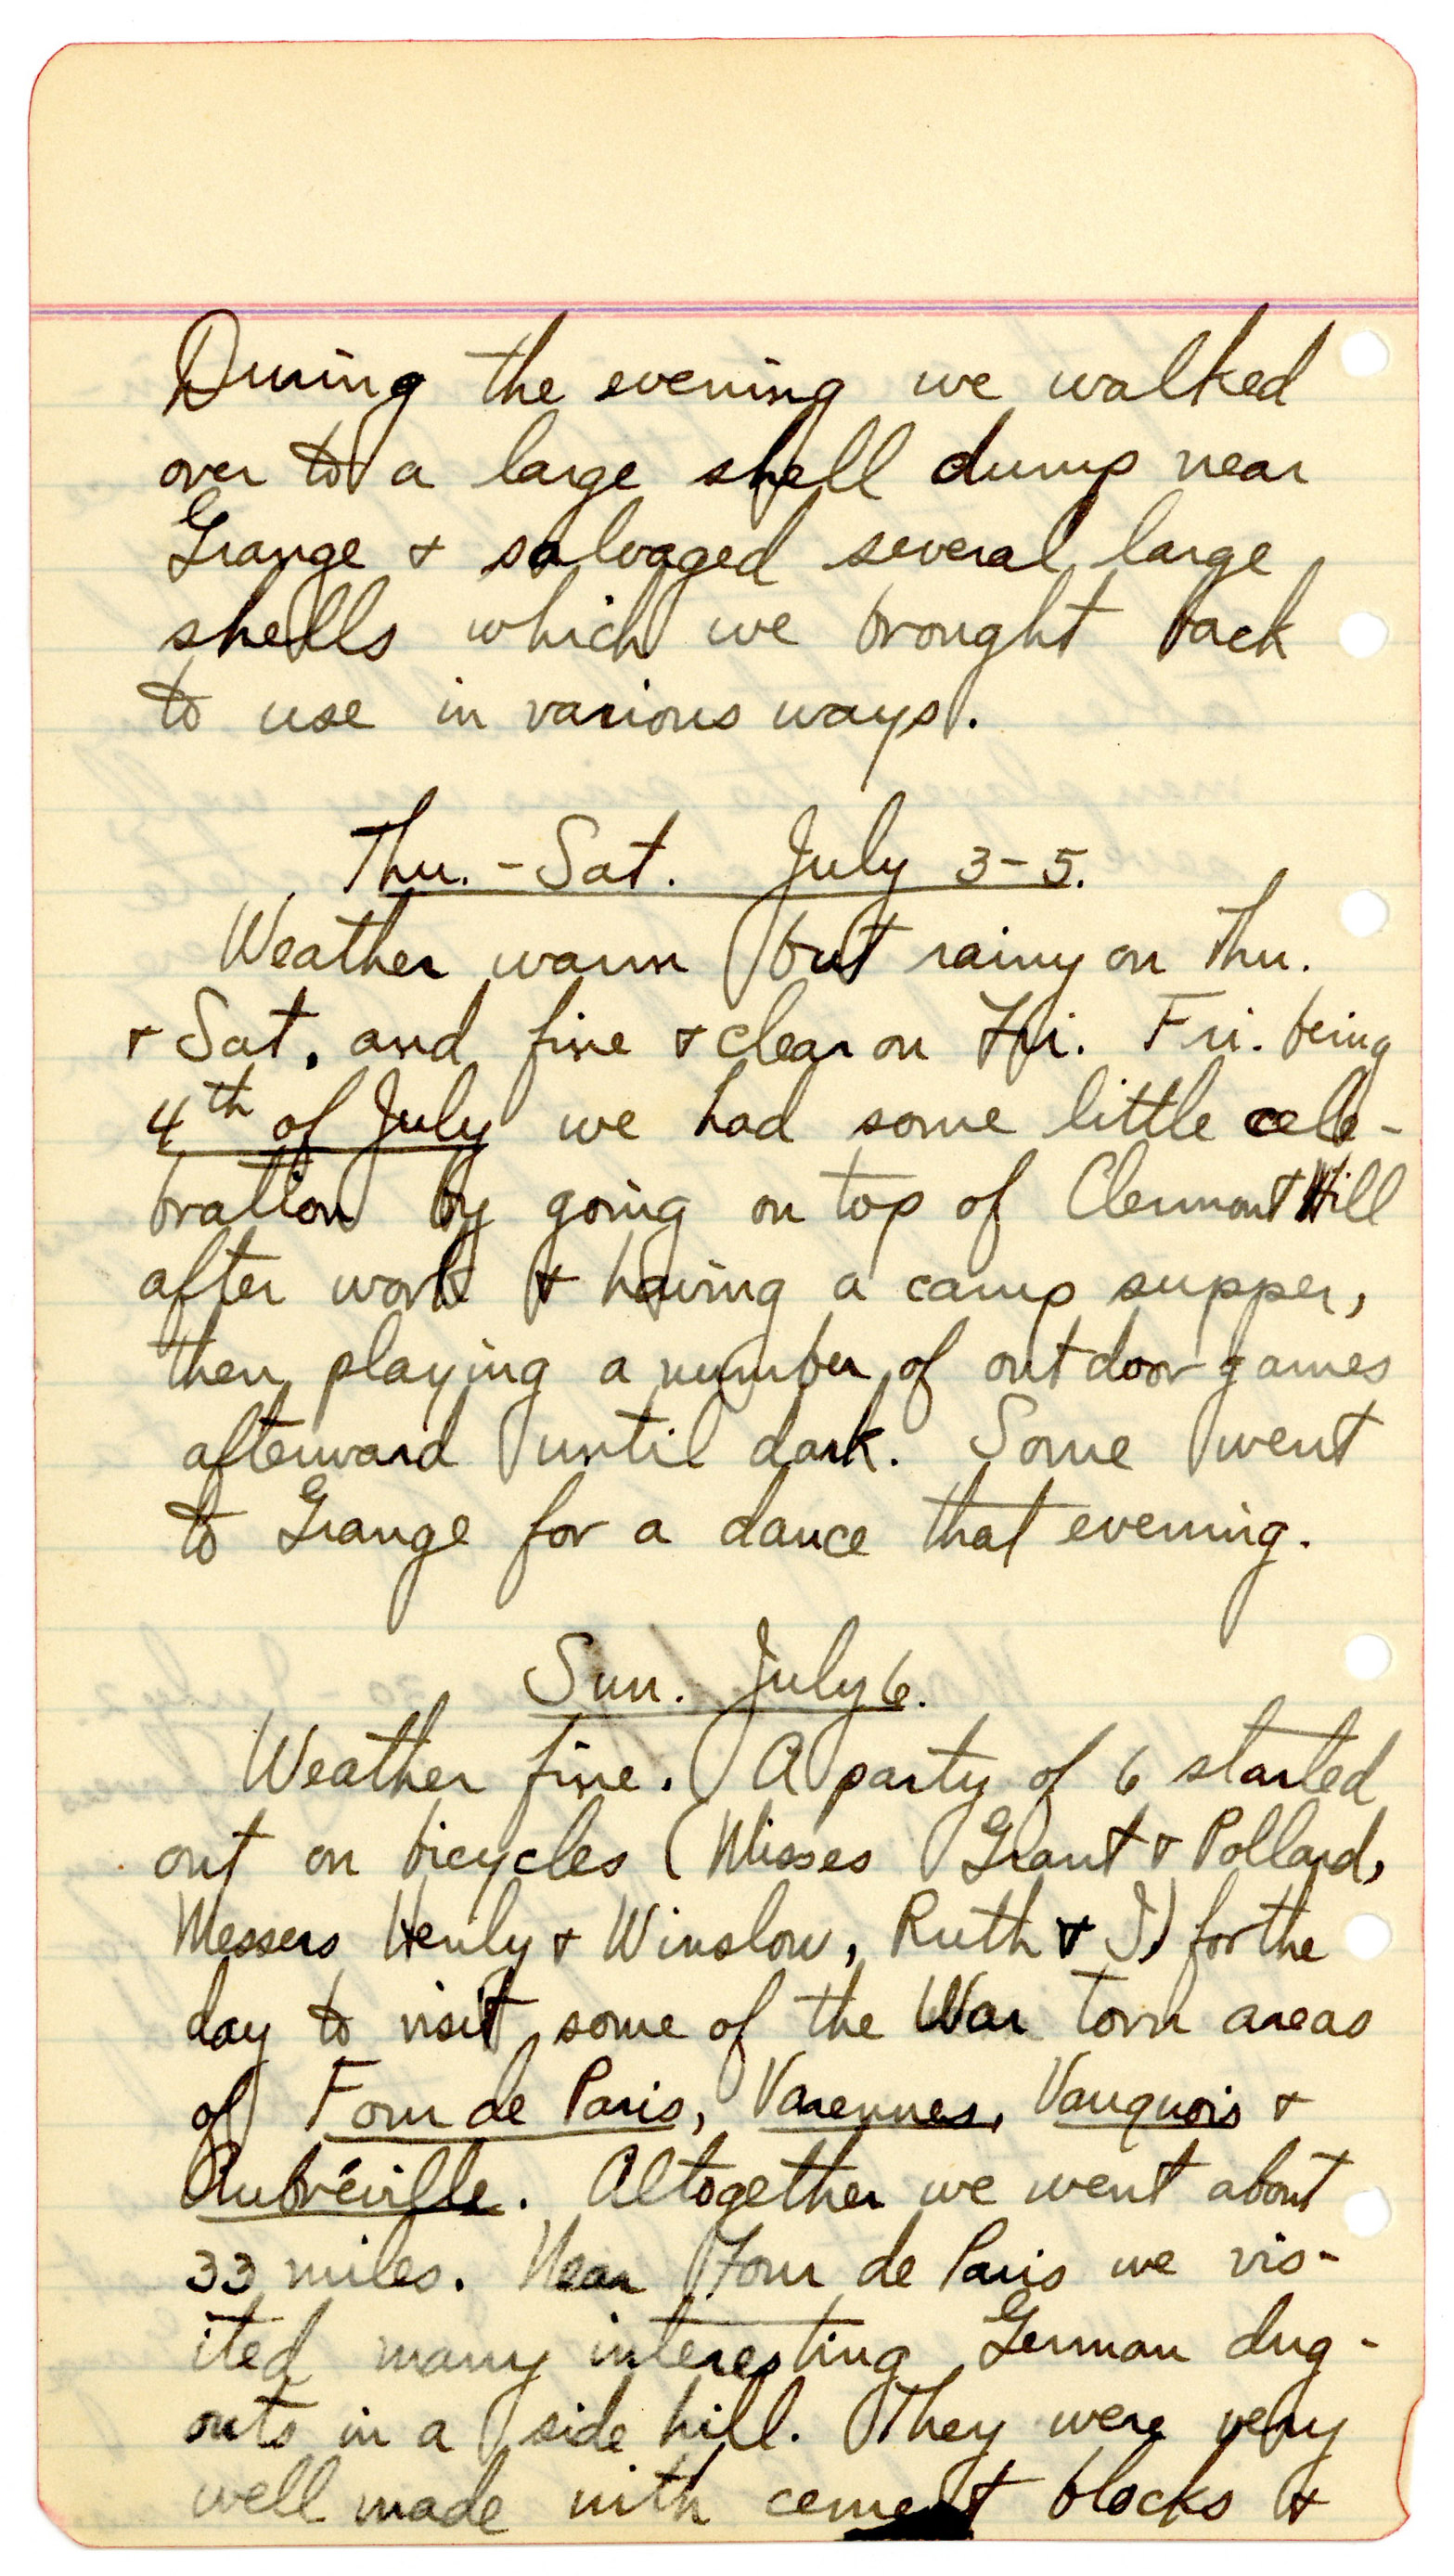 During the evening we walked
over to a large shell dump near
Grange & salvaged several large
shells which we brought back
to use in various ways.
Thu. - Sat. July 3-5.
Weather warm but rainy on Thu.
& Sat. and fine & clear on Fri. Fri. being
4th of July we had some little cele-
bration by going on top of Clermont Hill
after work & having a camp supper,
then playing a number of outdoor games
afterward until dark. Some went
to Grange for a dance that evening.
Sun. July 6.
Weather fine. A party of 6 started
out on bicycles (Misses Grant & Pollard,
Messers Henly & Winslow, Ruth & I) for the
day to visit some of the War torn areas
of Four de Paris, Varennes, Vauquois &
Aubréville. Altogether we went about
33 miles. Near Four de Paris we vis-
ited many interesting German dug-
outs in a side hill. They were very
well made with cement blocks &